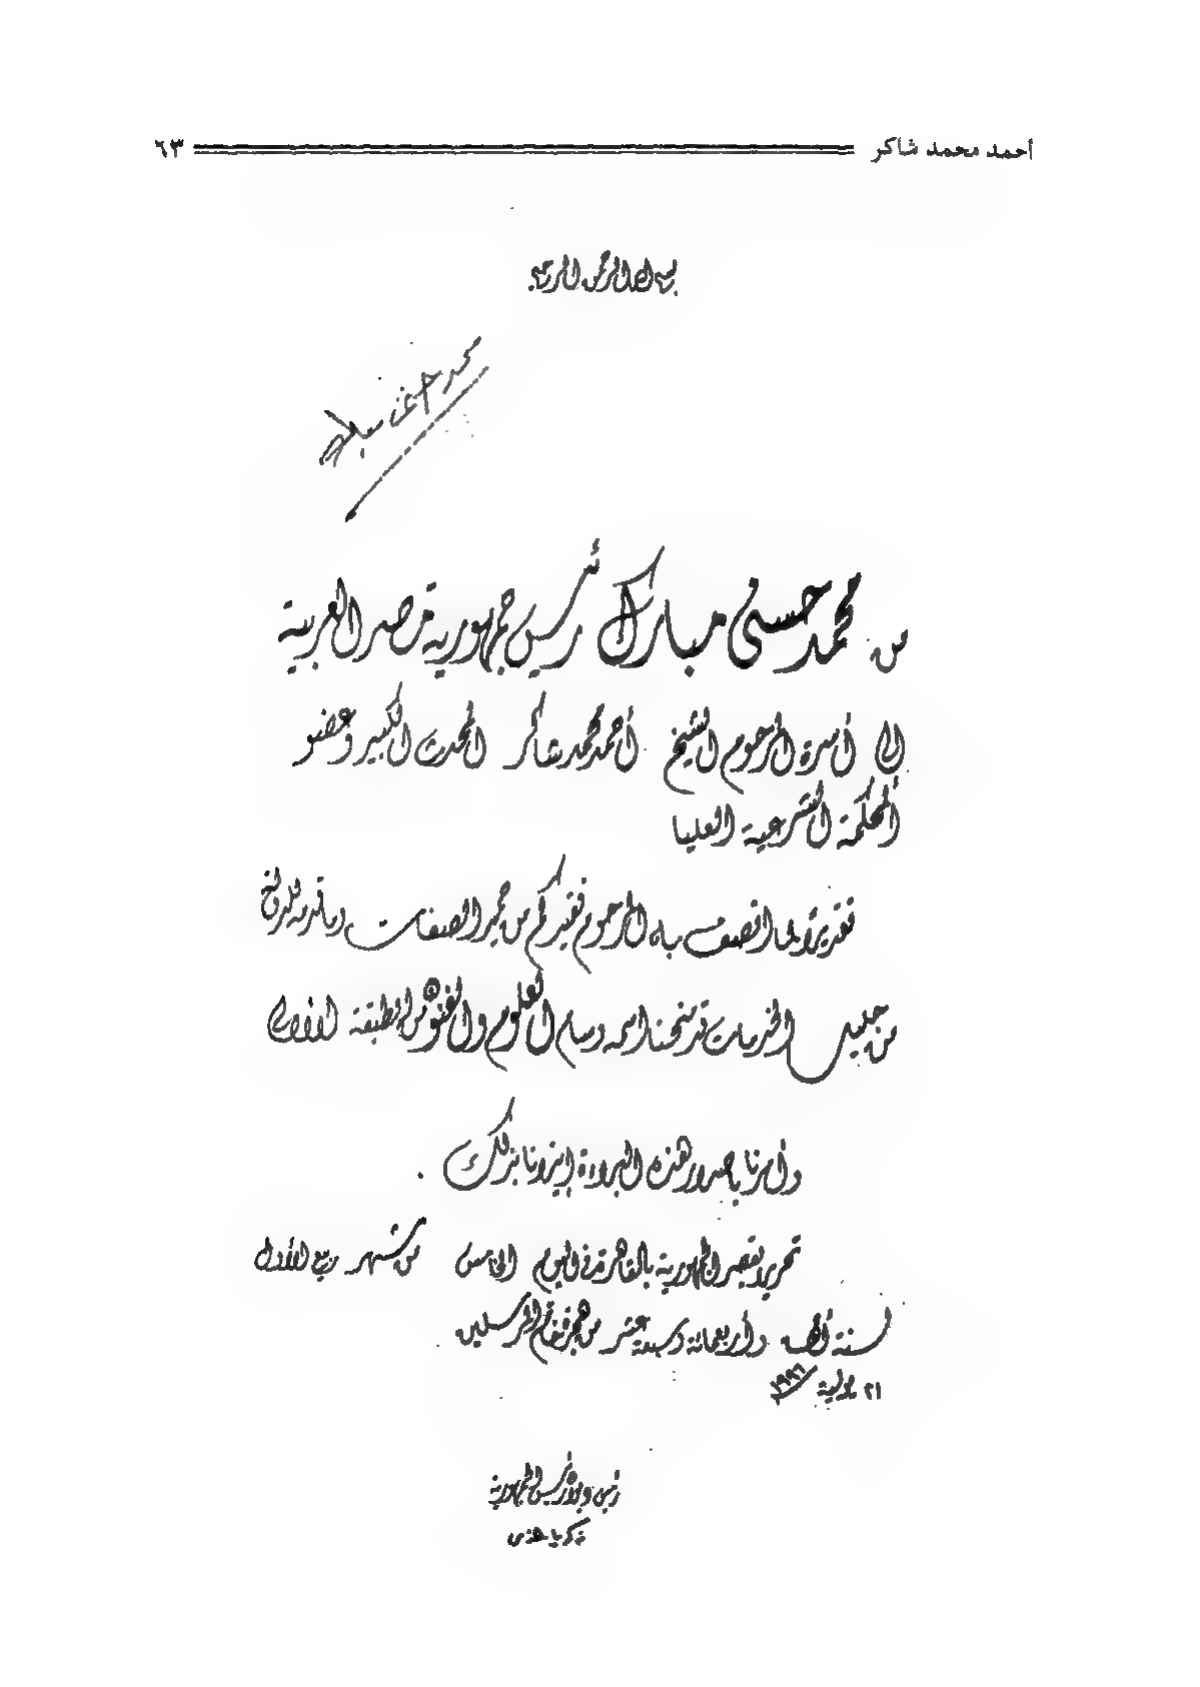 أحمد محمد شاكر ٦٣
بسم الله الرحمن الرحيم
محمد حسني مبارك
من محمد حسني مبارك رئيس جمهورية مصر العربية
إلى أسرة المرحوم الشيخ أحمد محمد شاكر المحدث الكبير وعضو
المحكمة الشرعية العليا
تقديرًا لما اتصف به المرحوم فقيدكم من حميد الصفات وما قدمه
من جليل الخدمات قد منحنا اسمه وسام العلوم والفنون من الطبقة الأولى
وأمرنا بإصدار هذه البراءة إيذانا بذلك .
تحريرا بقصر الجمهورية بالقاهرة في اليوم الخامس من شهر ربيع الأول
لسنة ألف وأربعمائة وسبعة عشر من هجرة خاتم المرسلين
٢١ يولية ١٩٩٦
رئيس ديوان رئيس الجمهورية
زكريا عزمى